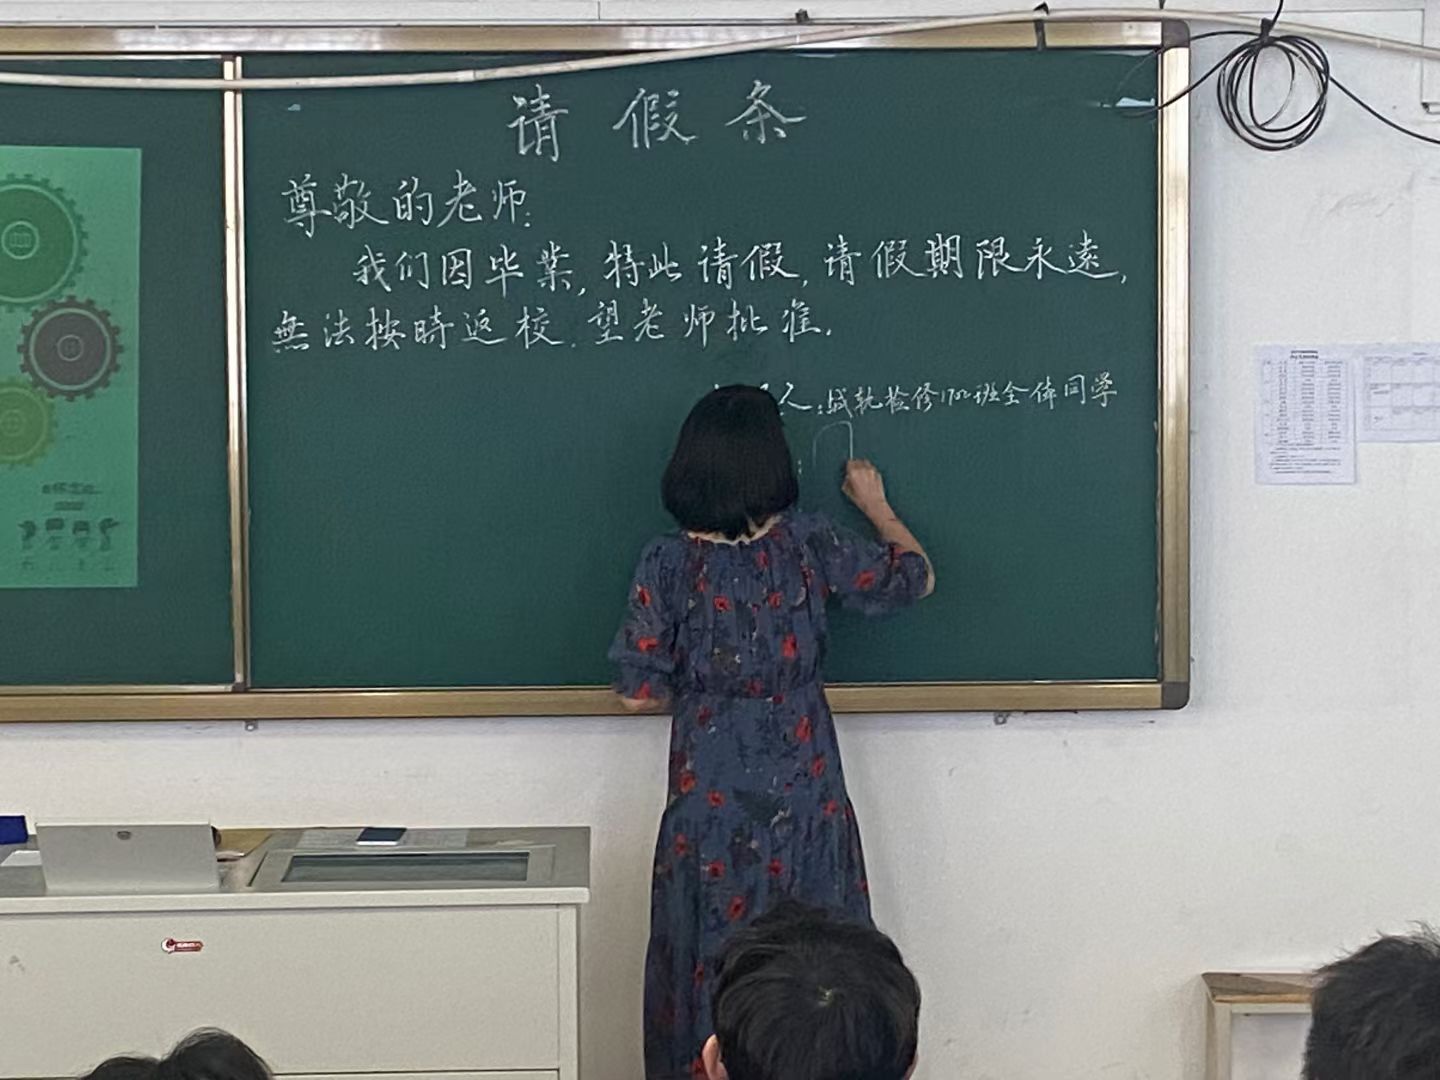 请假条
尊敬的老师:
我们因毕業,特此请假,请假期限永遠,
無法按時返校.望老师批准.
人:城轨检修1702班全体同学